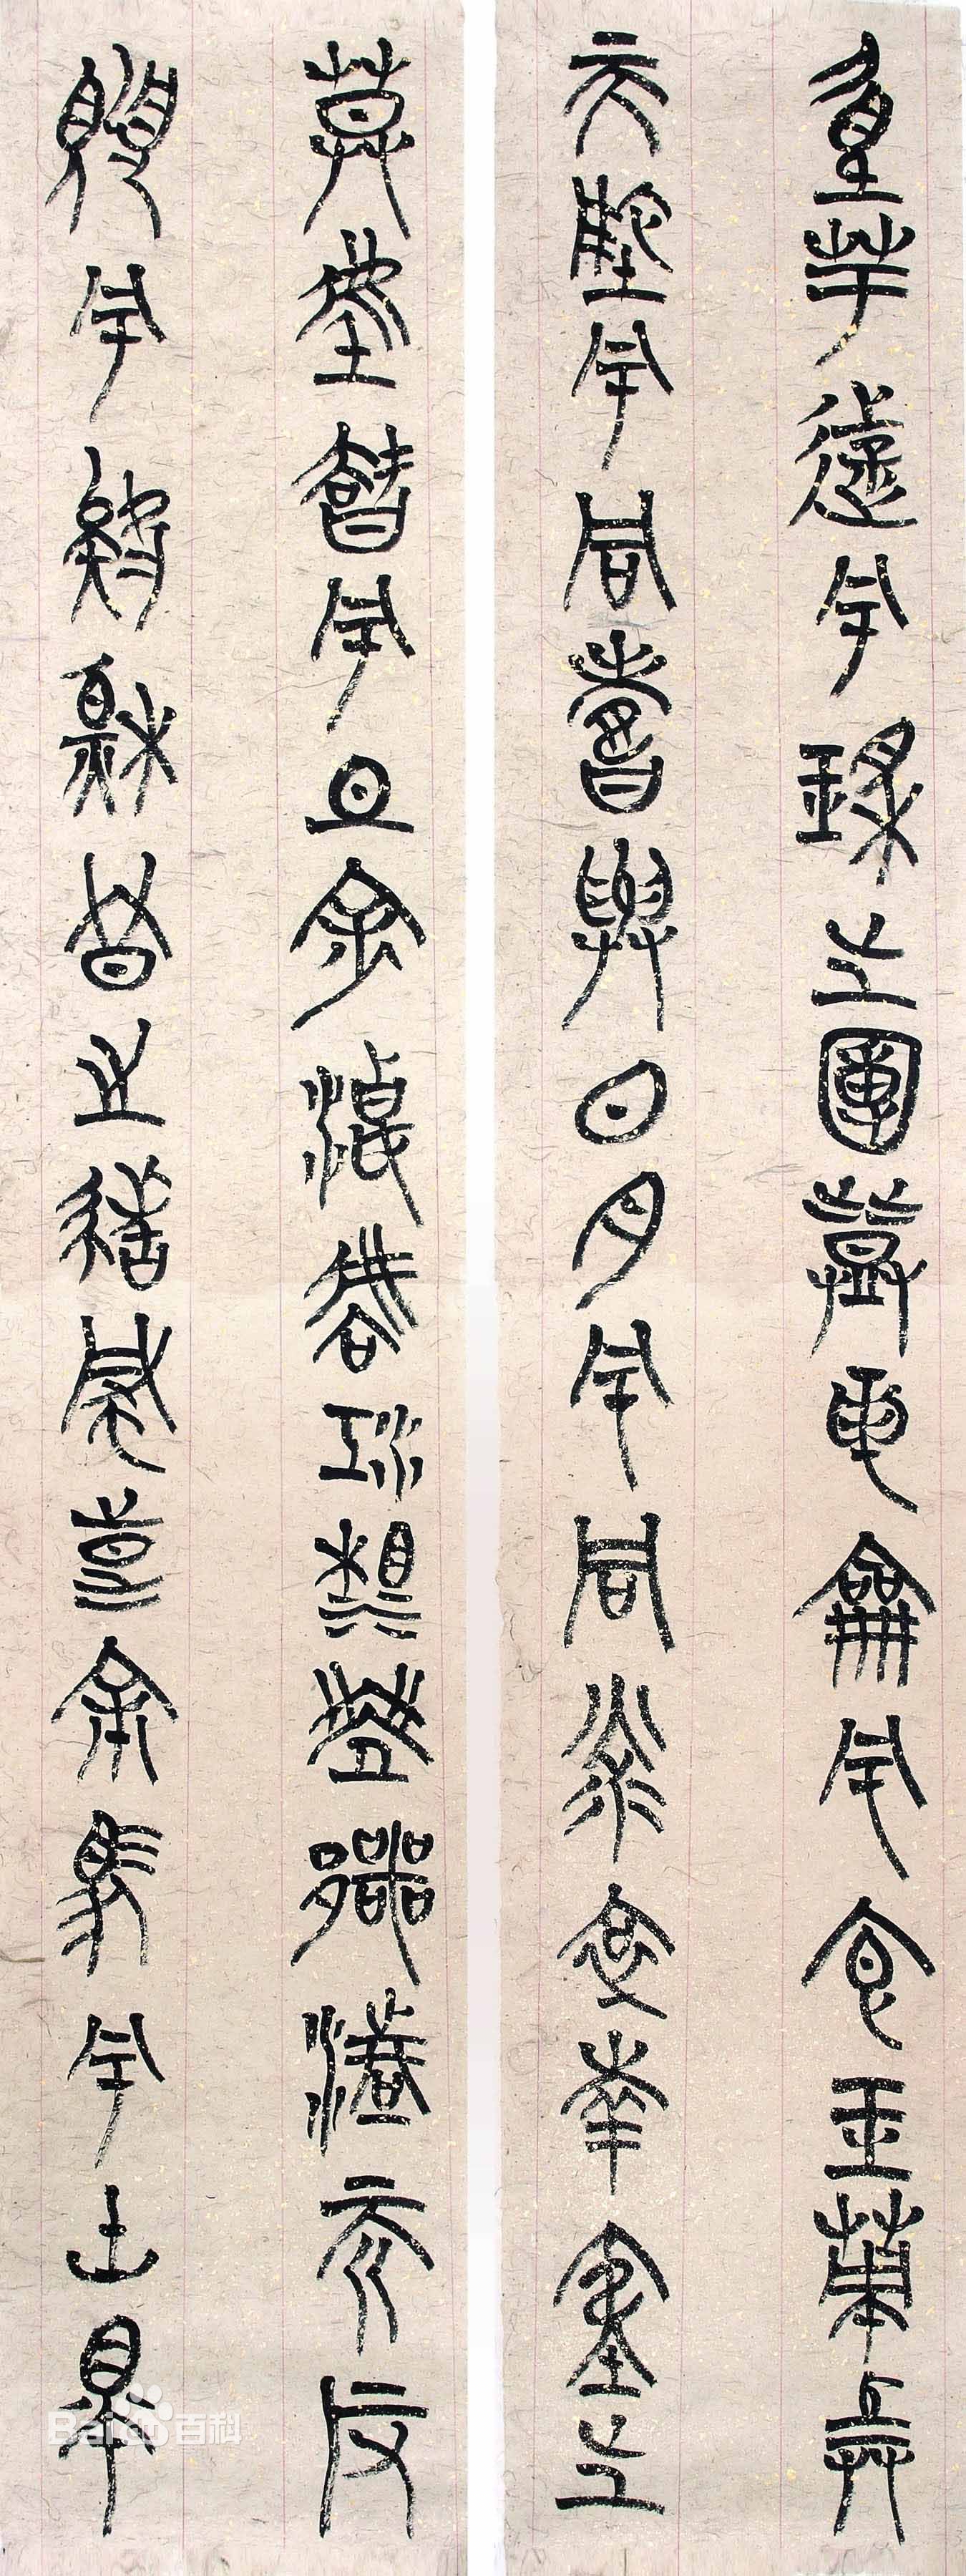 重華遊兮瑤之圃登昆侖兮食玉英與
天地兮同壽與日月兮同光哀南夷之
莫吾知兮旦余濟乎江湘乘鄂渚而反
顧兮欸秋冬之緒風步余馬兮山皋
Baidu百科